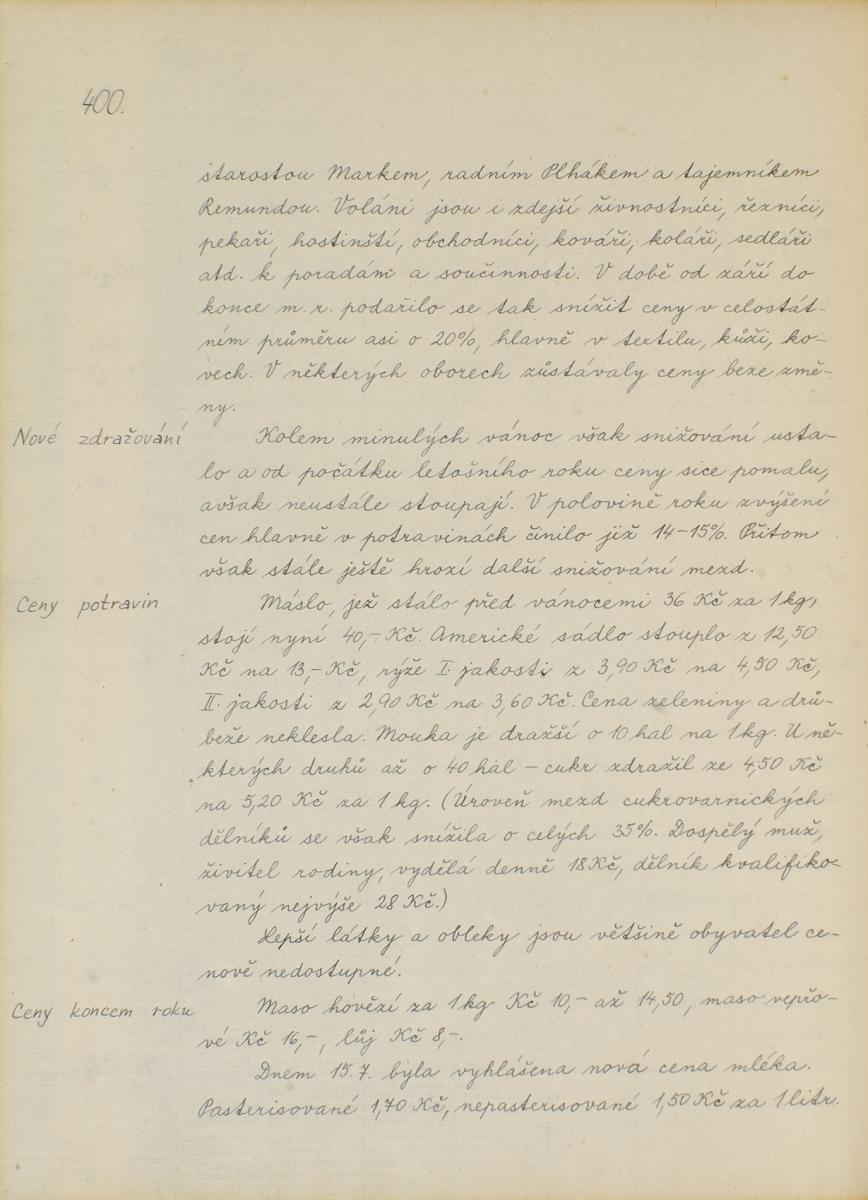 400.
starostou Markem, radním Plhákem a tajemníkem
Remundou. Voláni jsou i zdejší živnostníci, řezníci,
pekaři, hostinští, obchodníci, kováři, koláři, sedláři
atd. k poradám a součinnosti. V době od září do
konce m. r. podařilo se tak snížit ceny v celostát-
ním průměru asi o 20%, hlavně v textilu, kůži, ko-
vech. V některých oborech zůstávaly ceny beze změ-
ny.
Nové zdražování
Kolem minulých vánoc však snižování usta-
lo a od počátku letošního roku ceny sice pomalu,
avšak neustále stoupají. V polovině roku zvýšení
cen hlavně v potravinách činilo již 14-15%. Přitom
však stále ještě hrozí další snižování mezd.
Ceny potravin
Máslo, jež stálo před vánocemi 36 Kč za 1 kg,
stojí nyní 40,- Kč. Americké sádlo stouplo z 12,50
Kč na 13,- Kč, rýže I. jakosti z 3,90 Kč na 4,50 Kč,
II. jakosti z 2,90 Kč na 3,60 Kč. Cena zeleniny a drů-
beže neklesla. Mouka je dražší o 10 hal na 1 kg. U ně-
kterých druhů až o 40 hal - cukr zdražil ze 4,50 Kč
na 5,20 Kč za 1 kg. (Úroveň mezd cukrovarnických
dělníků se však snížila o celých 35%. Dospělý muž,
živitel rodiny, vydělá denně 18 Kč, dělník kvalifiko-
vaný nejvýše 28 Kč.)
Lepší látky a obleky jsou většině obyvatel ce-
nově nedostupné.
Ceny koncem roku
Maso hovězí za 1 kg Kč 10,- až 14,50, maso vepřo-
vé Kč 16,-, lůj Kč 8,-.
Dnem 15.7. byla vyhlášena nová cena mléka.
Pasterisované 1,70 Kč, nepasterisované 1,50 Kč za 1 litr.